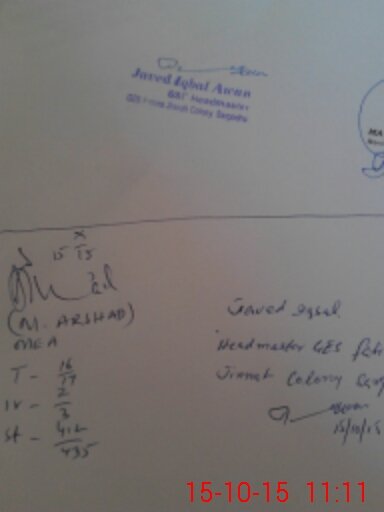 Javed Iqbal Awan
Headmaster
Colony Sargodha
MA
X
15 15
(M. ARSHAD)
MEA
T - 16/17
2/3
St - 412/435
Javed Iqbal
Headmaster GES
Jinnah Colony
15/10/15
15-10-15 11:11